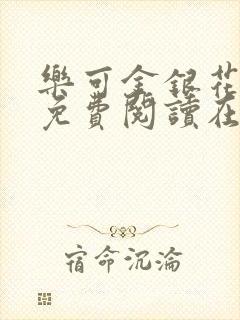 樂可金銀花
免費閱讀在
宿命沉淪